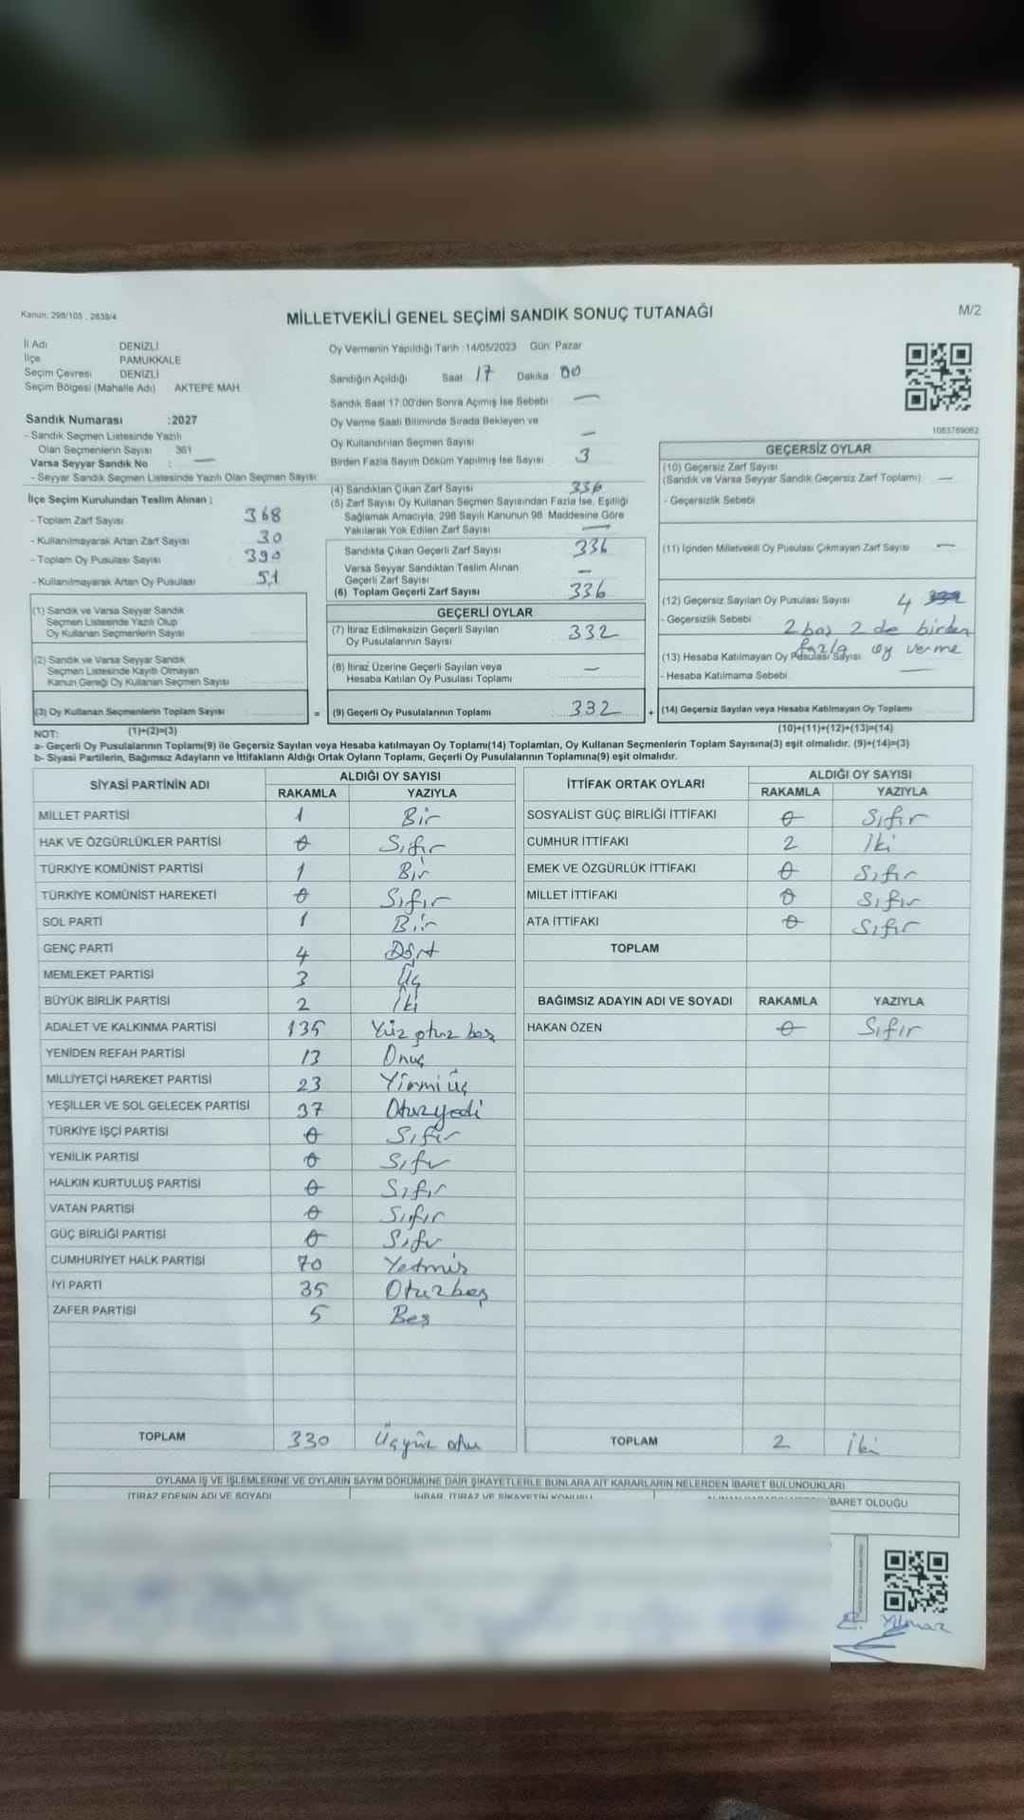 Kanun: 298/105 , 2839/4
MİLLETVEKİLİ GENEL SEÇİMİ SANDIK SONUÇ TUTANAĞI
M/2
İl Adı DENİZLİ
İlçe PAMUKKALE
Seçim Çevresi DENİZLİ
Seçim Bölgesi (Mahalle Adı) AKTEPE MAH
Sandık Numarası :2027
- Sandık Seçmen Listesinde Yazılı
Olan Seçmenlerin Sayısı 361
Varsa Seyyar Sandık No : —
- Seyyar Sandık Seçmen Listesinde Yazılı Olan Seçmen Sayısı
İlçe Seçim Kurulundan Teslim Alınan :
- Toplam Zarf Sayısı 368
- Kullanılmayarak Artan Zarf Sayısı 30
- Toplam Oy Pusulası Sayısı 390
- Kullanılmayarak Artan Oy Pusulası 51
(1) Sandık ve Varsa Seyyar Sandık
Seçmen Listesinde Yazılı Olup
Oy Kullanan Seçmenlerin Sayısı
(2) Sandık ve Varsa Seyyar Sandık
Seçmen Listesinde Kayıtlı Olmayan
Kanun Gereği Oy Kullanan Seçmen Sayısı
(3) Oy Kullanan Seçmenlerin Toplam Sayısı
(1)+(2)=(3)
Oy Vermenin Yapıldığı Tarih :14/05/2023 Gün: Pazar
Sandığın Açıldığı Saat 17 Dakika 00
Sandık Saat 17.00'den Sonra Açmış İse Sebebi —
Oy Verme Saati Bitiminde Sırada Bekleyen ve
Oy Kullandırılan Seçmen Sayısı —
Birden Fazla Sayım Döküm Yapılmış İse Sayısı 3
(4) Sandıktan Çıkan Zarf Sayısı 336
(5) Zarf Sayısı Oy Kullanan Seçmen Sayısından Fazla İse, Eşitliği
Sağlamak Amacıyla, 298 Sayılı Kanunun 98. Maddesine Göre
Yakılarak Yok Edilen Zarf Sayısı —
Sandıkta Çıkan Geçerli Zarf Sayısı 336
Varsa Seyyar Sandıktan Teslim Alınan
Geçerli Zarf Sayısı —
(6) Toplam Geçerli Zarf Sayısı 336
GEÇERLİ OYLAR
(7) İtiraz Edilmeksizin Geçerli Sayılan
Oy Pusulalarının Sayısı 332
(8) İtiraz Üzerine Geçerli Sayılan veya
Hesaba Katılan Oy Pusulası Toplamı —
= (9) Geçerli Oy Pusulalarının Toplamı 332 +
1083769062
GEÇERSİZ OYLAR
(10) Geçersiz Zarf Sayısı
(Sandık ve Varsa Seyyar Sandık Geçersiz Zarf Toplamı) —
- Geçersizlik Sebebi
(11) İçinden Milletvekili Oy Pusulası Çıkmayan Zarf Sayısı —
(12) Geçersiz Sayılan Oy Pusulası Sayısı 4
- Geçersizlik Sebebi 2 boş 2 de birden
fazla oy verme
(13) Hesaba Katılmayan Oy Pusulası Sayısı
- Hesaba Katılmama Sebebi —
(14) Geçersiz Sayılan veya Hesaba Katılmayan Oy Toplamı
(10)+(11)+(12)+(13)=(14)
NOT:
a- Geçerli Oy Pusulalarının Toplamı(9) ile Geçersiz Sayılan veya Hesaba katılmayan Oy Toplamı(14) Toplamları, Oy Kullanan Seçmenlerin Toplam Sayısına(3) eşit olmalıdır. (9)+(14)=(3)
b- Siyasi Partilerin, Bağımsız Adayların ve İttifakların Aldığı Oyların Toplamı, Geçerli Oy Pusulalarının Toplamına(9) eşit olmalıdır.
SİYASİ PARTİNİN ADI ALDIĞI OY SAYISI
RAKAMLA YAZIYLA
MİLLET PARTİSİ 1 Bir
HAK VE ÖZGÜRLÜKLER PARTİSİ 0 Sıfır
TÜRKİYE KOMÜNİST PARTİSİ 1 Bir
TÜRKİYE KOMÜNİST HAREKETİ 0 Sıfır
SOL PARTİ 1 Bir
GENÇ PARTİ 4 Dört
MEMLEKET PARTİSİ 3 Üç
BÜYÜK BİRLİK PARTİSİ 2 İki
ADALET VE KALKINMA PARTİSİ 135 Yüz otuz beş
YENİDEN REFAH PARTİSİ 13 Onüç
MİLLİYETÇİ HAREKET PARTİSİ 23 Yirmi üç
YEŞİLLER VE SOL GELECEK PARTİSİ 37 Otuzyedi
TÜRKİYE İŞÇİ PARTİSİ 0 Sıfır
YENİLİK PARTİSİ 0 Sıfır
HALKIN KURTULUŞ PARTİSİ 0 Sıfır
VATAN PARTİSİ 0 Sıfır
GÜÇ BİRLİĞİ PARTİSİ 0 Sıfır
CUMHURİYET HALK PARTİSİ 70 Yetmiş
İYİ PARTİ 35 Otuzbeş
ZAFER PARTİSİ 5 Beş
TOPLAM 330 Üçyüz otuz
İTTİFAK ORTAK OYLARI ALDIĞI OY SAYISI
RAKAMLA YAZIYLA
SOSYALİST GÜÇ BİRLİĞİ İTTİFAKI 0 Sıfır
CUMHUR İTTİFAKI 2 İki
EMEK VE ÖZGÜRLÜK İTTİFAKI 0 Sıfır
MİLLET İTTİFAKI 0 Sıfır
ATA İTTİFAKI 0 Sıfır
TOPLAM
BAĞIMSIZ ADAYIN ADI VE SOYADI RAKAMLA YAZIYLA
HAKAN ÖZEN 0 Sıfır
TOPLAM 2 İki
OYLAMA İŞ VE İŞLEMLERİNE VE OYLARIN SAYIM DÖKÜMÜNE DAİR ŞİKAYETLERLE BUNLARA AİT KARARLARIN NELERDEN İBARET BULUNDUKLARI
İTİRAZ EDENİN ADI VE SOYADI İHBAR, İTİRAZ VE ŞİKAYETİN KONUSU İBARET OLDUĞU
E. Yılmaz